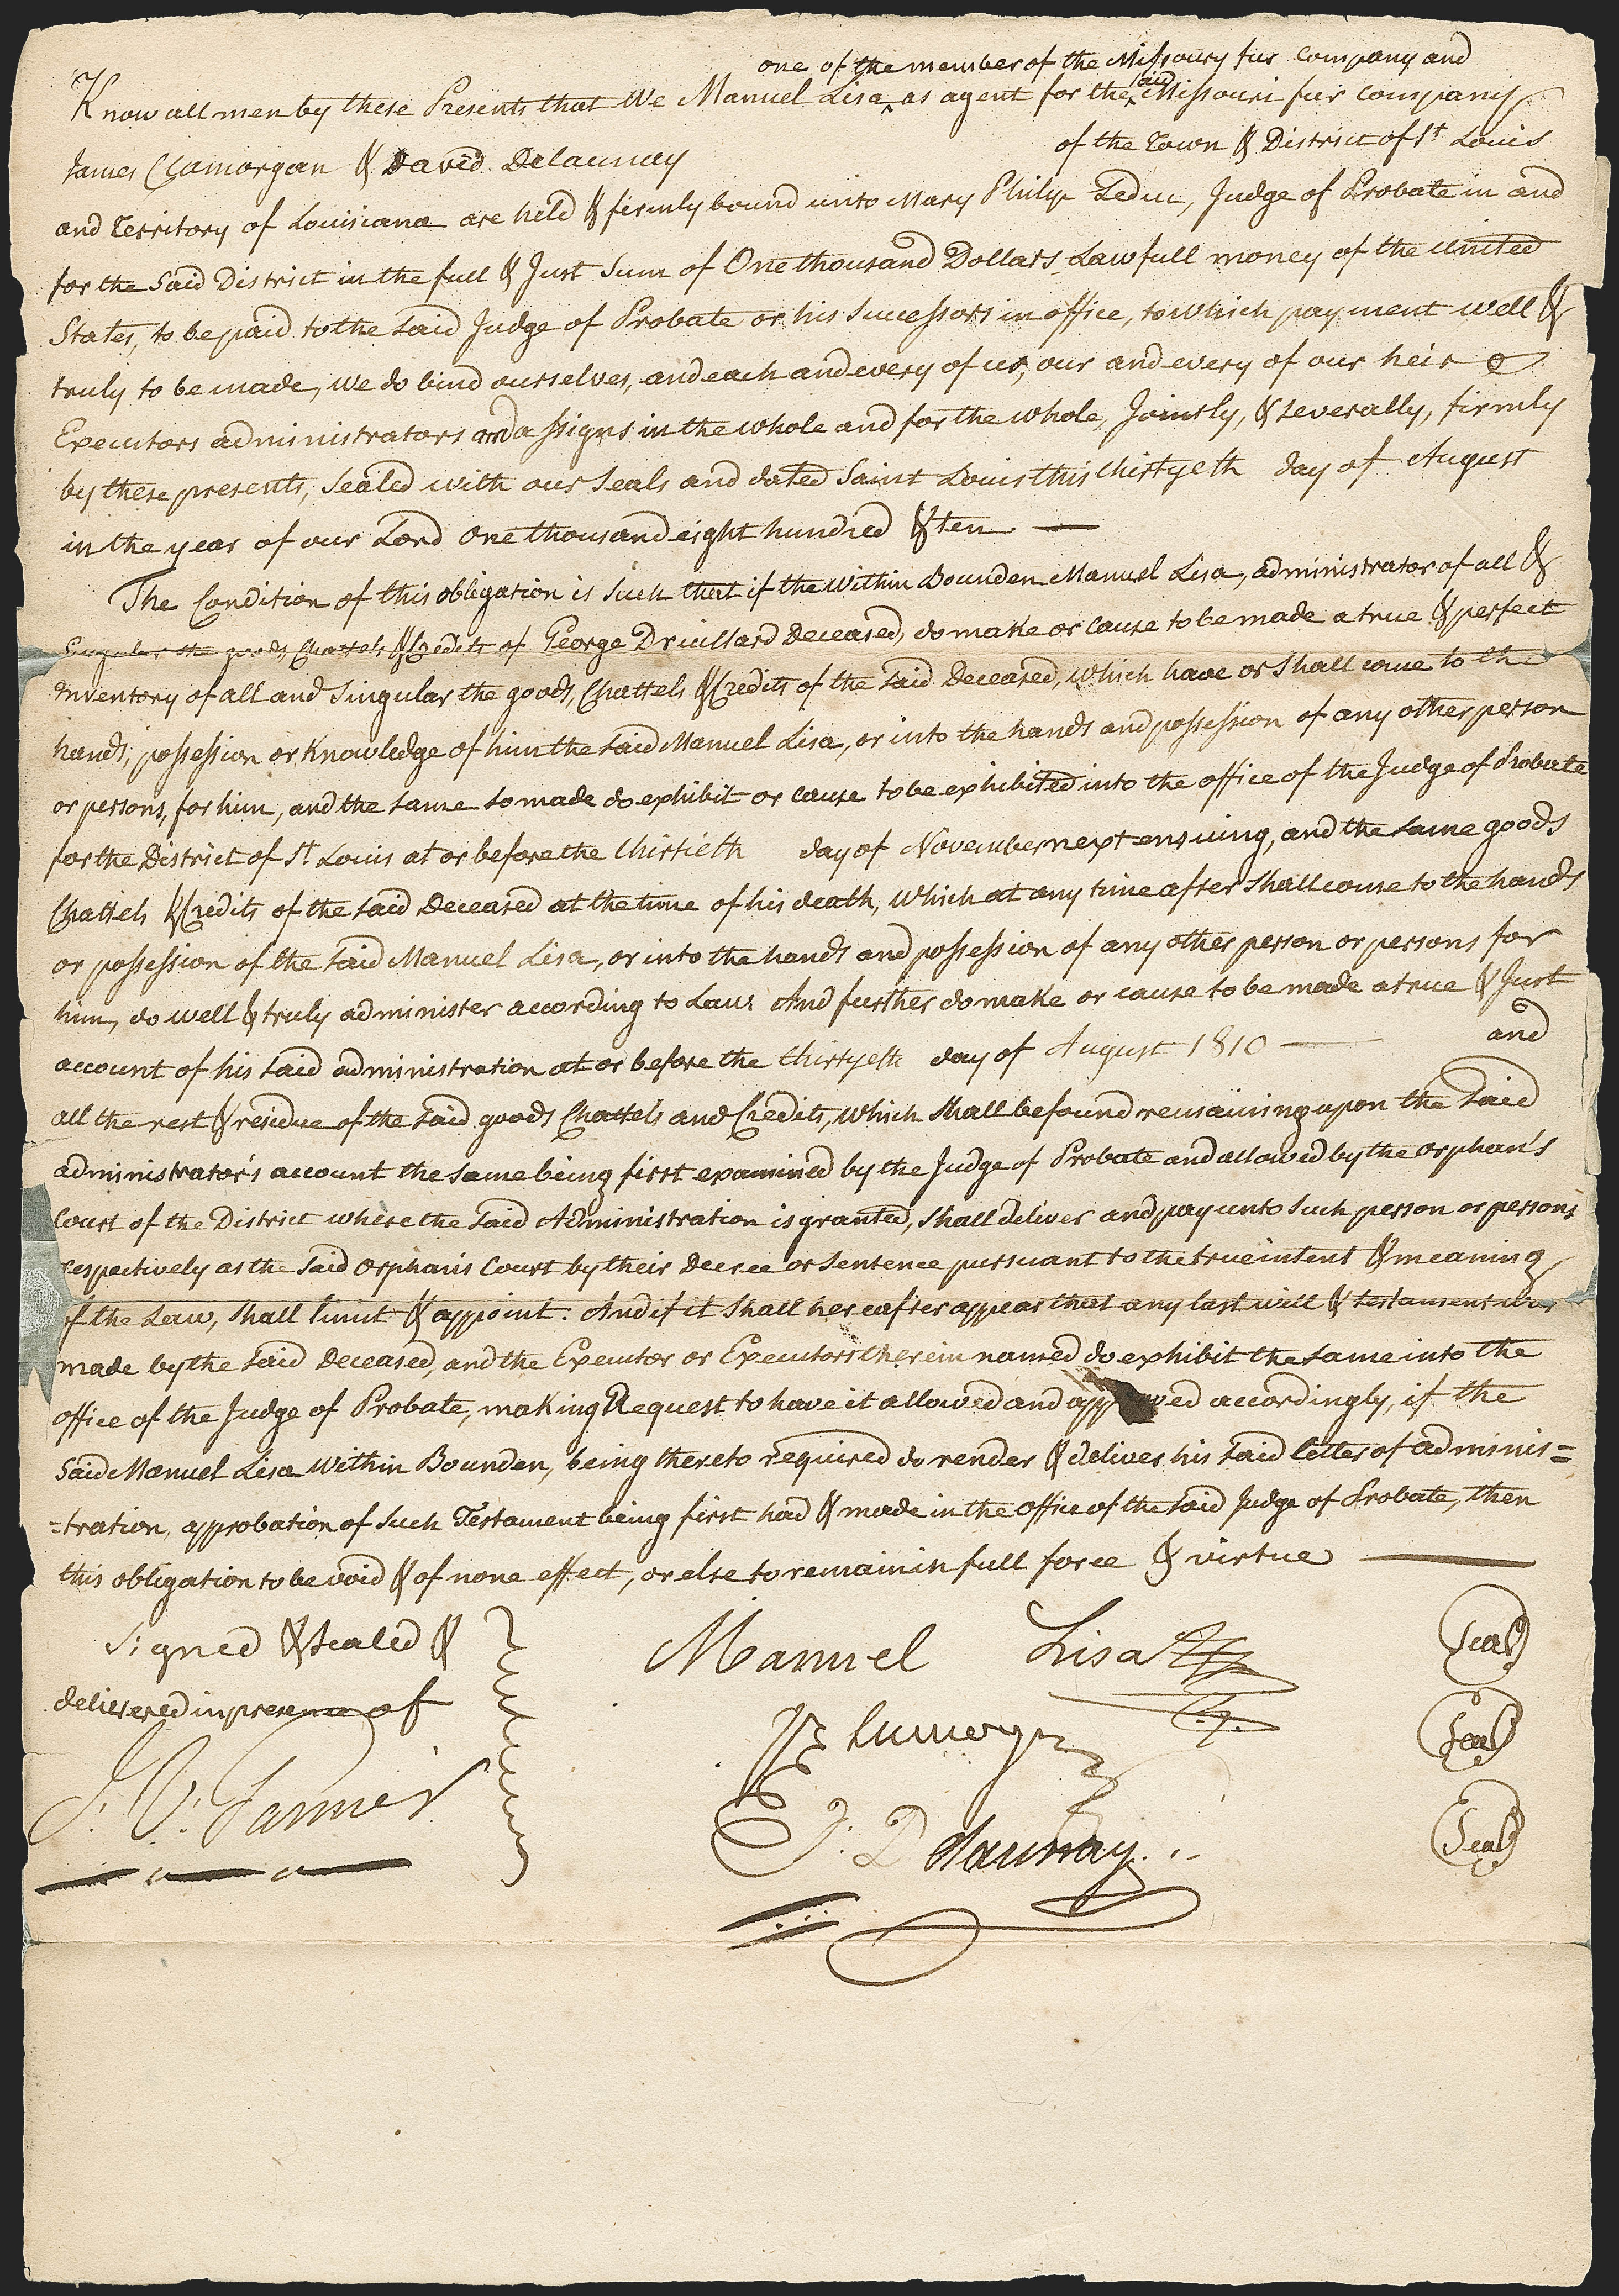 one of the member of the Missoury fur Company and
Know all men by these Presents that We Manuel Lisa ‸ as agent for the ‸ said Missouri fur Company
James Clamorgan & David Delaunay of the Town & District of St Louis
and Territory of Louisiana are held & firmly bound unto Mary Philip Leduc, Judge of Probate in and
for the Said District in the full & Just Sum of One thousand Dollars Lawfull money of the United
States, to be paid to the said Judge of Probate or his Successors in office, to which payment well &
truly to be made, we do bind ourselves, and each and every of us, our and every of our heir
Executors administrators and assigns in the whole and for the whole, Jointly, & severally, firmly
by these presents, Sealed with our Seals and dated Saint Louis this thirtyeth day of August
in the year of our Lord One thousand eight hundred & ten —
The Condition of this obligation is Such that if the within Bounden Manuel Lisa, administrator of all &
Singular the goods, Chattels & Credits of George Druillard Deceased, do make or cause to be made a true & perfect
Inventory of all and Singular the goods, Chattels & Credits of the said Deceased, which have or shall come to the
hands, possession or Knowledge of him the said Manuel Lisa, or into the hands and possession of any other person
or persons, for him, and the same so made do exhibit or cause to be exhibited into the office of the Judge of Probate
for the District of St Louis at or before the thirtieth day of November next ensuing, and the same goods
Chattels & Credits of the said Deceased at the time of his death, which at any time after shall come to the hands
or possession of the said Manuel Lisa, or into the hands and possession of any other person or persons for
him, do well & truly administer according to Law. And further do make or cause to be made a true & Just
account of his said administration at or before the thirtyeth day of August 1810 — and
all the rest & residue of the said goods Chattels and Credits, which shall be found remaining upon the said
administrator's account the same being first examined by the Judge of Probate and allowed by the orphan's
Court of the District where the said Administration is granted, shall deliver and pay unto such person or persons
respectively as the said orphan's Court by their Decree or sentence pursuant to the true intent & meaning
of the Law, shall limit & appoint. And if it shall hereafter appear that any last will & testament was
made by the said deceased, and the Executor or Executors therein named do exhibit the same into the
office of the Judge of Probate, making Request to have it allowed and approved accordingly, if the
Said Manuel Lisa within Bounden, being thereto required do render & deliver his said letter of adminis=
=tration, approbation of such Testament being first had & made in the office of the said Judge of Probate, then
this obligation to be void & of none effect, or else to remain in full force & virtue —
Signed & sealed &
delivered in presence of
Manuel Lisa Seal
Seal
J. V. Garnier
D Delaunay Seal